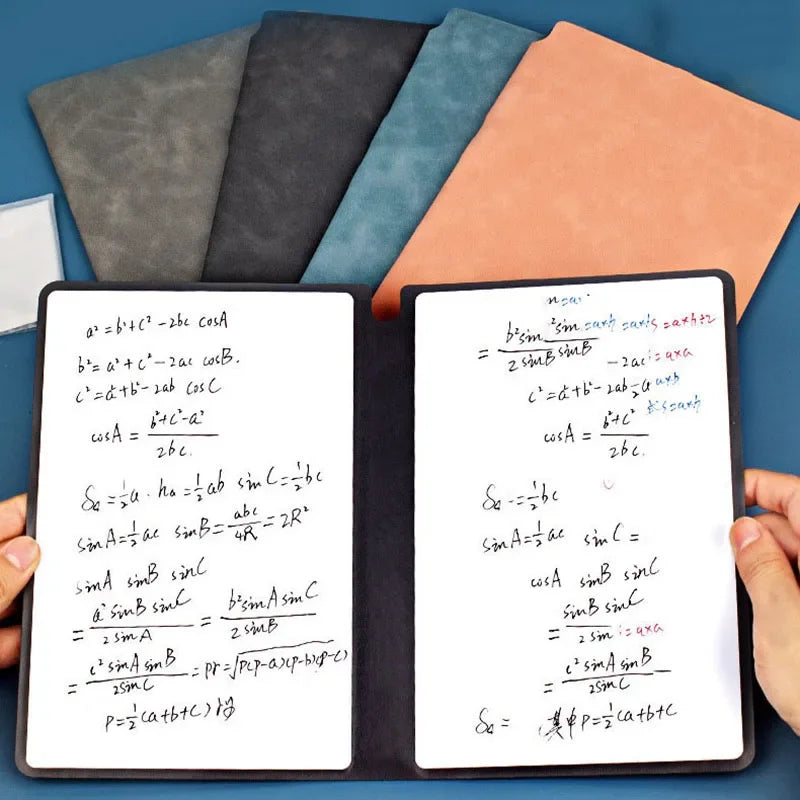 a² = b²+c² -2bc cosA
b² = a²+c²-2ac cosB.
c² = a²+b²-2ab cosC
cosA = b²+c²-a² / 2bc.
S△ = ½a·ha = ½ab sinC = ½bc
sinA = ½ac sinB = abc / 4R = 2R²
sinA sinB sinC
= a² sinB sinC / 2sinA = b² sinA sinC / 2sinB
= c² sinA sinB / 2sinC = pr = √p(p-a)(p-b)(p-c)
P = ½(a+b+c)
= b² sin sin / 2 sinB sinB =a×h =a×h S=a×h÷2
-2ac =a×a
c² = a²+b²-2ab a×b
cosA = b²+c² / 2bc. S=a×h
S△ = ½bc
sinA = ½ac sinC =
cosA sinB sinC
= sinB sinC / 2sin =a×a
= c² sinA sinB / 2sinC
S△ = 其中P = ½(a+b+c